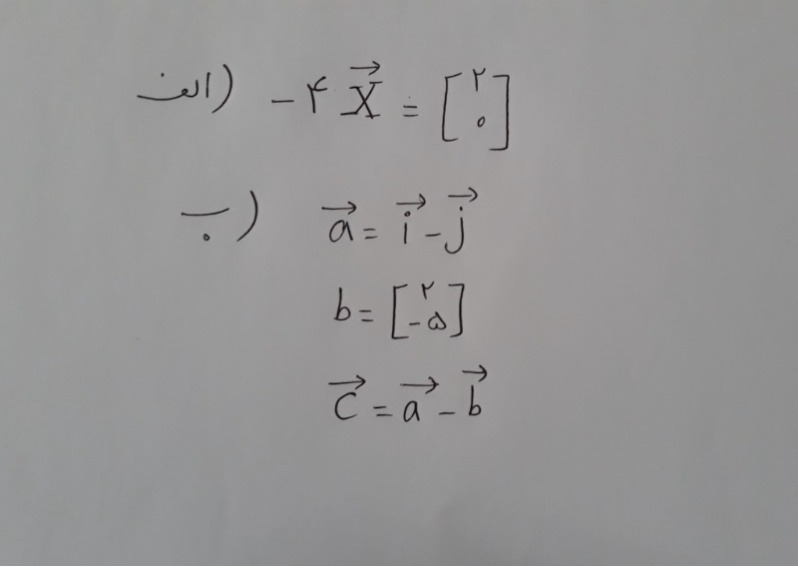 الف) -۴X⃗ = [۲ ۰]
ب) a⃗ = i⃗ - j⃗
b = [۲ -۵]
c⃗ = a⃗ - b⃗